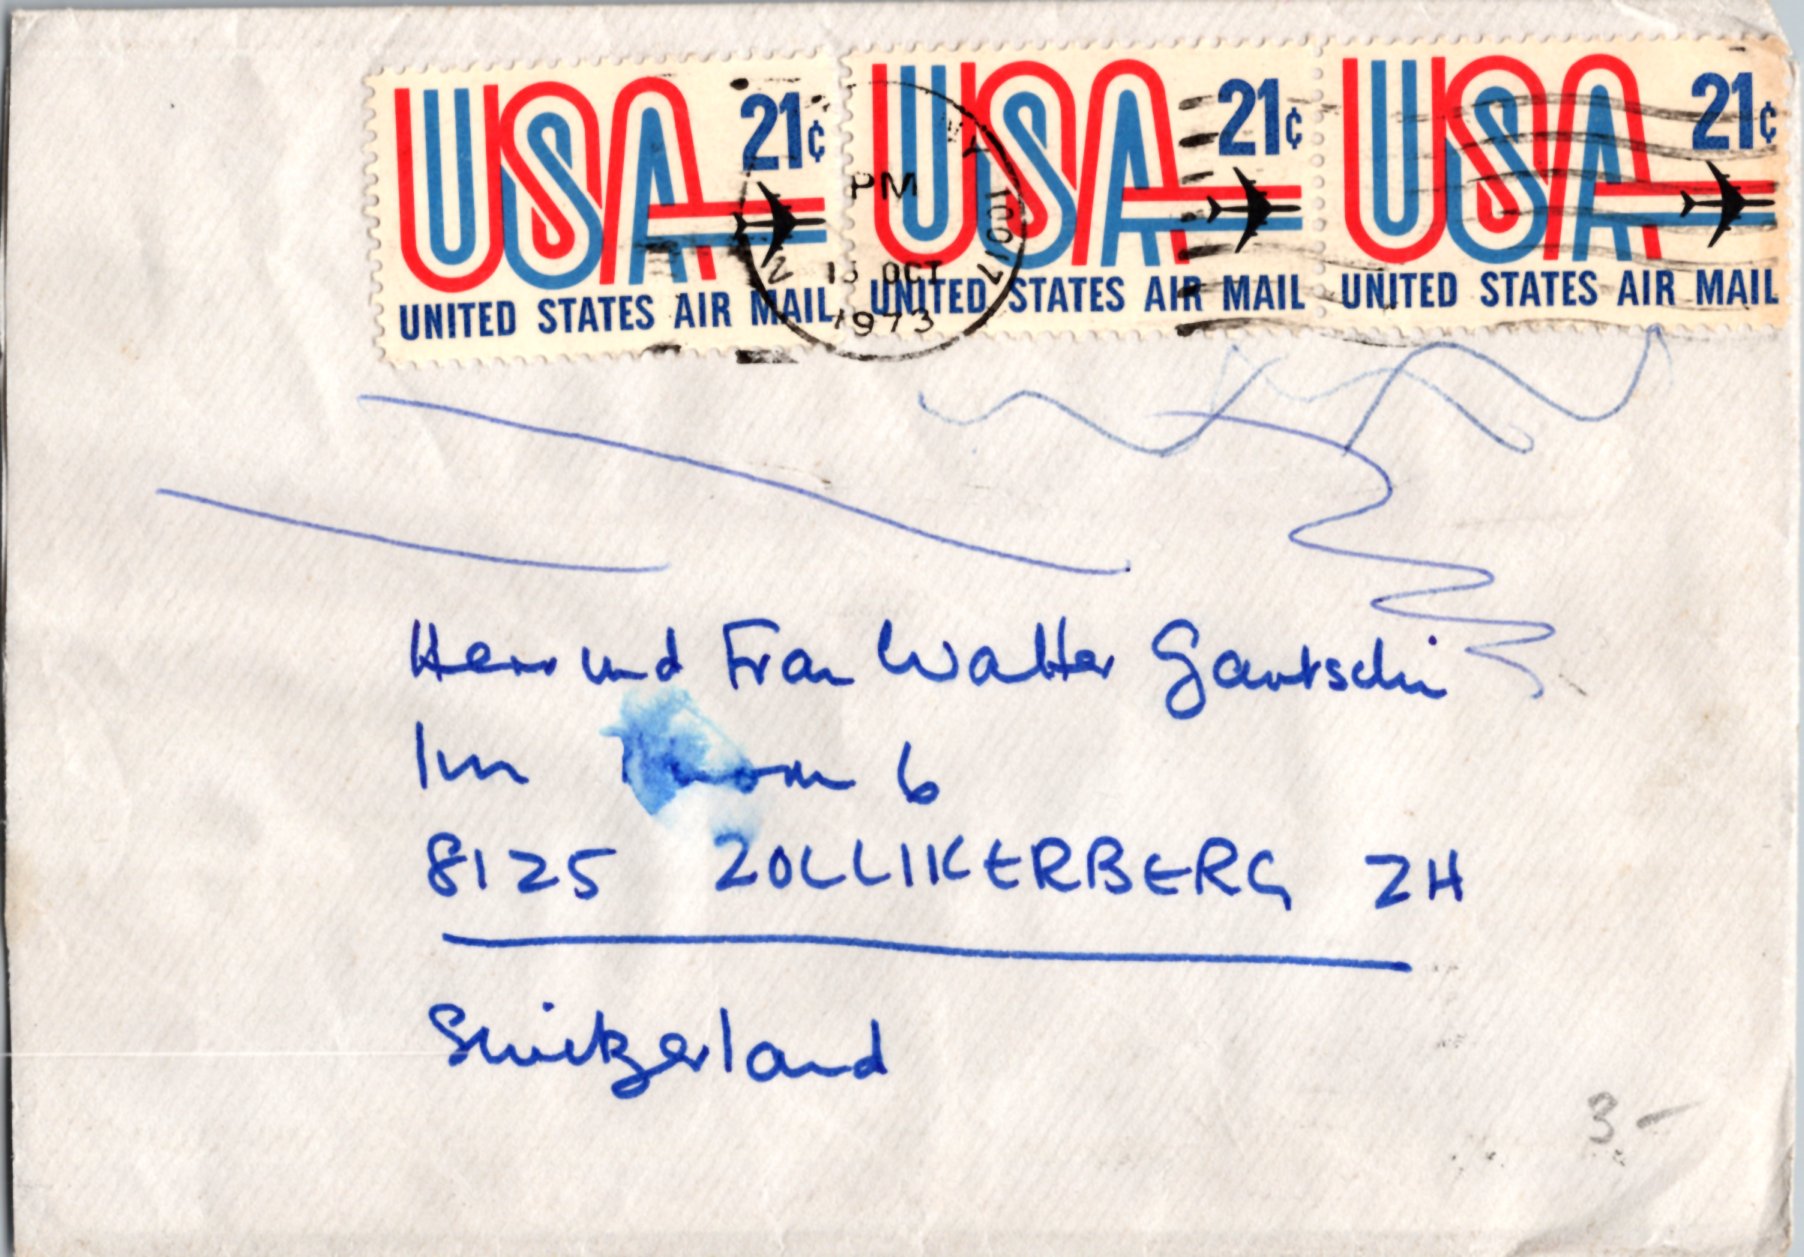 USA 21¢ USA 21¢ USA 21¢
UNITED STATES AIR MAIL UNITED STATES AIR MAIL UNITED STATES AIR MAIL
NY 10017
PM
13 OCT
1973
Herr und Frau Walter Gautschi
Im 6
8125 ZOLLIKERBERG ZH
Switzerland
3.-